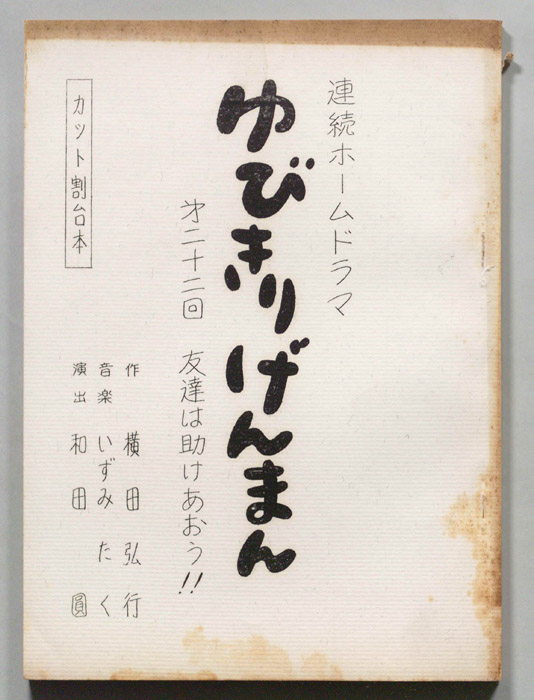 連続ホームドラマ
ゆびきりげんまん
㐧二十二回 友達は助けあおう!!
作 横田弘行
音楽 いずみたく
演出 和田圓
カット割台本